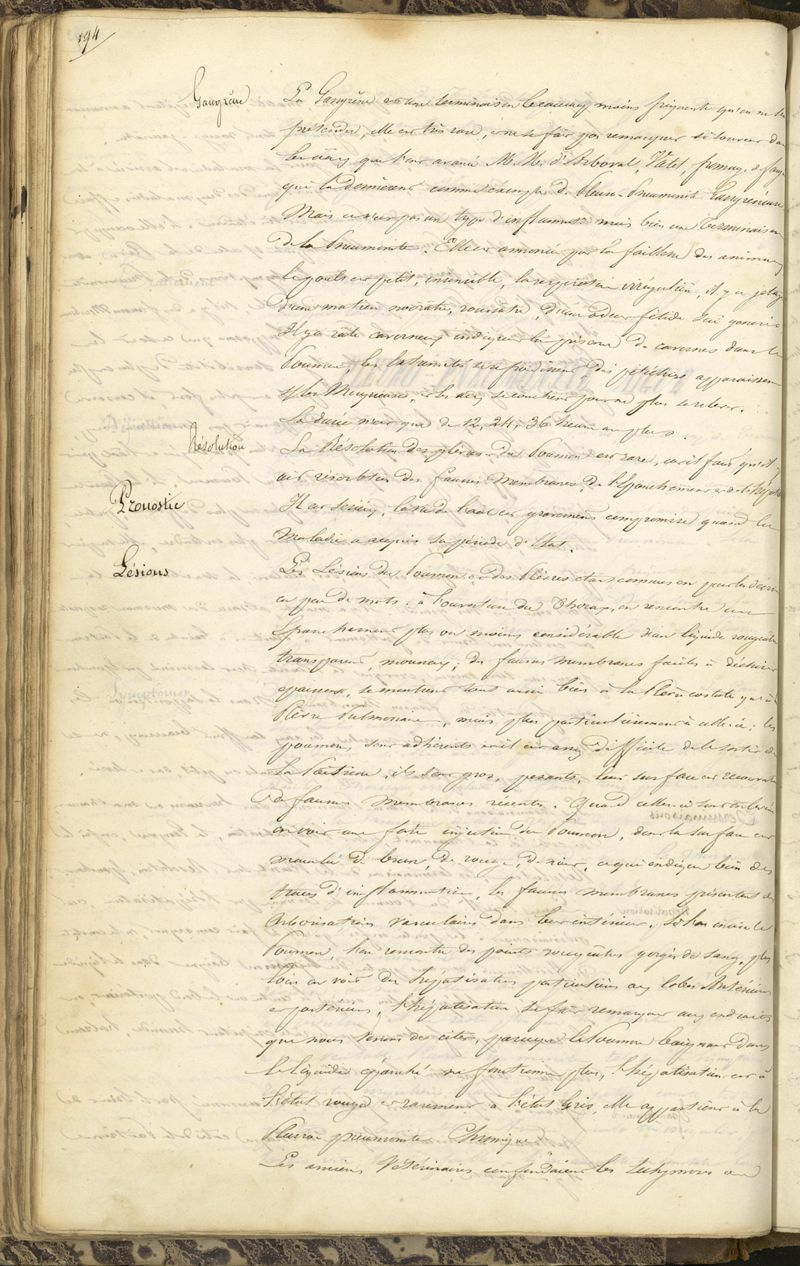 194
Gangrène La Gangrène est une terminaison beaucoup moins fréquente qu'on ne l'a
prétendu, elle est très rare, et ne se fait pas remarquer si souvent dans
les cas que l'ont avancé M.M. d'Arboval, Vatel,
qui la donnèrent comme exemple de Pleuro-Pneumonite Gangréneuse
Mais ce n'est pas un type d'inflammat. mais bien une Terminaison
De la Pneumonite. Elle est annoncée par la faiblesse des animaux
le pouls est petit, insensible, la respiration irrégulière, il y a jetage
d'une matière noirâtre, roussâtre, d'une odeur fétide sui generis
Il y a râle caverneux indiquant la présence de cavernes dans le
Poumon, les extrémités se refroidissent des pétéchies apparaissent
s/ les Muqueuses, et les se couchent pour ne plus se relever.
La durée n'est que de 12, 24, 36 heures au plus.
Résolution La Résolution des plèvres du Poumon est rare, car il faut qu'il y
ait résorption des fausses Membranes, de l'Epanchement et de l'hépat
Pronostic Il est sérieux, la vie de l'animal est gravement compromise quand la
Maladie a acquis sa période d'état.
Lésions Les Lésions du Poumon et des Plèvres étant connues on peut les décrire
en peu de mots. à l'ouverture du Thorax, on rencontre un
Epanchement plus ou moins considérable d'un liquide rougeâtre
transparent, mousseux, des fausses membranes faciles à déchirer
épaisses, se montrent tout aussi bien à la Plèvre costale qu'à la
Plèvre Pulmonaire, mais plus particulièrement à celle-ci; les
poumons sont adhérents et il est assez difficile de le sortir de
La Poitrine, ils sont gros, pesants, leur surface est recouverte
De fausses Membranes récentes. Quand celles-ci sont enlevées
on voit une forte injection du Poumon, dont la surface est
de brun, de rouge, de noir, ce qui indique bien des
traces d'inflammation, les fausses membranes présentent des
Arborisations vasculaires dans leur intérieur. Si l'on incise le
Poumon, l'on rencontre des points rougeâtres gorgés de sang, plus
loin on voit des hépatisations particulières aux lobes Antérieurs
et postérieurs, l'hépatisation se fait remarquer aux endroits
que nous venons de citer, parceque le Poumon baignant dans
le liquide épanché ne fonctionne plus, l'hépatisation est à
l'état rouge et rarement à l'état Gris, elle appartient à la
Pleuro pneumonite Chronique.
Les anciens Vétérinaires confondaient les